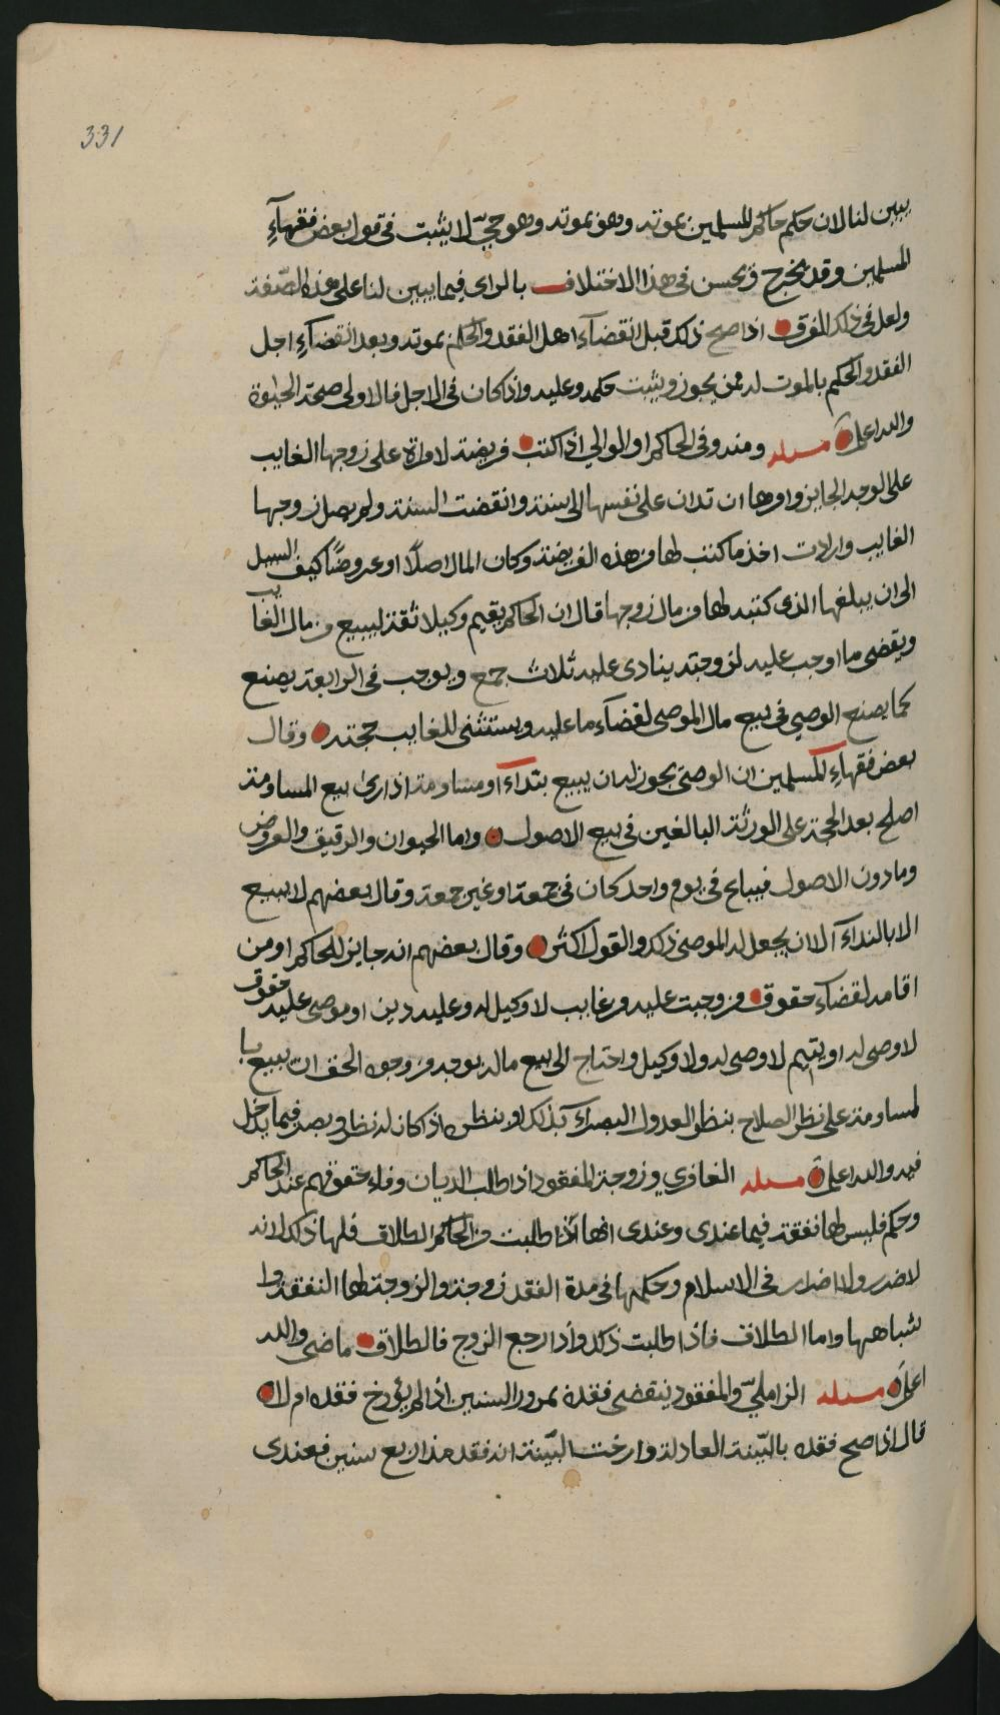 331
يبين لنا لان حكم حاكم المسلمين بموته وهو بموته وهو حيّ لا يثبت في قول بعض فقهآءِ
المسلمين وقد يخرج ويحسن في هذا الاختلاف بالراى فيما يبين لنا على هذه الصّفة
ولعل في ذلك الفرق اذا صح ذلك قبل انقضآء اهل الفقد والحكم بموته وبعد انقضآءِ اجل
الفقد والحكم بالموت له فمن يجوز ويثبت حكمه وعليه واذا كان في الاجل فالاولى صحة الحيٰوة
والله اعلم مسئله ومنه وفى الحاكم او الوالي اذا كتب فريضة لامراة على زوجها الغايب
على الوجه الجايز وامرها ان تدان على نفسها الى سنة وانقضت السنة ولم يصل زوجها
الغايب وارادت اخذ ما كتب لها من هذه الفريضة وكان المال اصلًا او عروضًا كيف السبيل
الى ان يبلغها الذى كتبه لها من مال زوجها قال ان الحاكم يقيم وكيلا ثقة ليبيع من مال الغايب
ويقضى ما اوجب عليه لزوجته ينادى عليه ثلاث جمع ويوجب في الرابعة يصنع
كما يصنع الوصي في بيع مال الموصى لقضآء ما عليه ويستثنى للغايب حجته وقال
بعض فقهاءِ المسلمين ان الوصيّ يجوز له ان يبيع بندآءٍ او مساومة اذا رىٰ بيع المساومة
اصلح بعد الحجة على الورثة البالغين في بيع الاصول واما الحيوان والرقيق والعروض
وما دون الاصول فيباع في يوم واحد كان في جمعة او غير جمعة وقال بعضهم لا يبيع
الا بالندآء الا ان يجعل له الموصى ذلك والقول اكثر وقال بعضهم انه جايز للحاكم او من
اقامه لقضآء حقوق من وجبت عليه من غايب لا وكيل له وعليه دين او موصى عليه حقوق
لا وصى له او يتيم لا وصى له ولا وكيل واحتاج الى بيع ماله بوجه من وجوه الحق ان يبيع با
لمساومة على نظر الصلاح بنظر العدول البصرآء بذلك او بنظره اذا كان له نظر وبصر فيما يدخل
فيه والله اعلم مسئله الغافري وزوجة المفقود اذا طلب الديان وفاء حقوقهم عند الحاكم
وحكم فليس لها نفقة فيما عندى وعندى انها اذا طلبت من الحاكم الطلاق فلها ذلك لانه
لا ضرر ولا اضرار في الاسلام وحكمها في مدة الفقد زوجة والزوجة لها النفقة وا
شباهها واما الطلاق فاذا طلبت ذلك واذا رجع الزوج فالطلاق ماضى والله
اعلم مسئله الزامليّ والمفقود ينقضى فقده بمرور السنين اذا لم يؤرخ فقده ام لا
قال اذا صح فقده بالبيّنة العادلة وارخت البيّنة انه فقد منذ اربع سنين فعندى